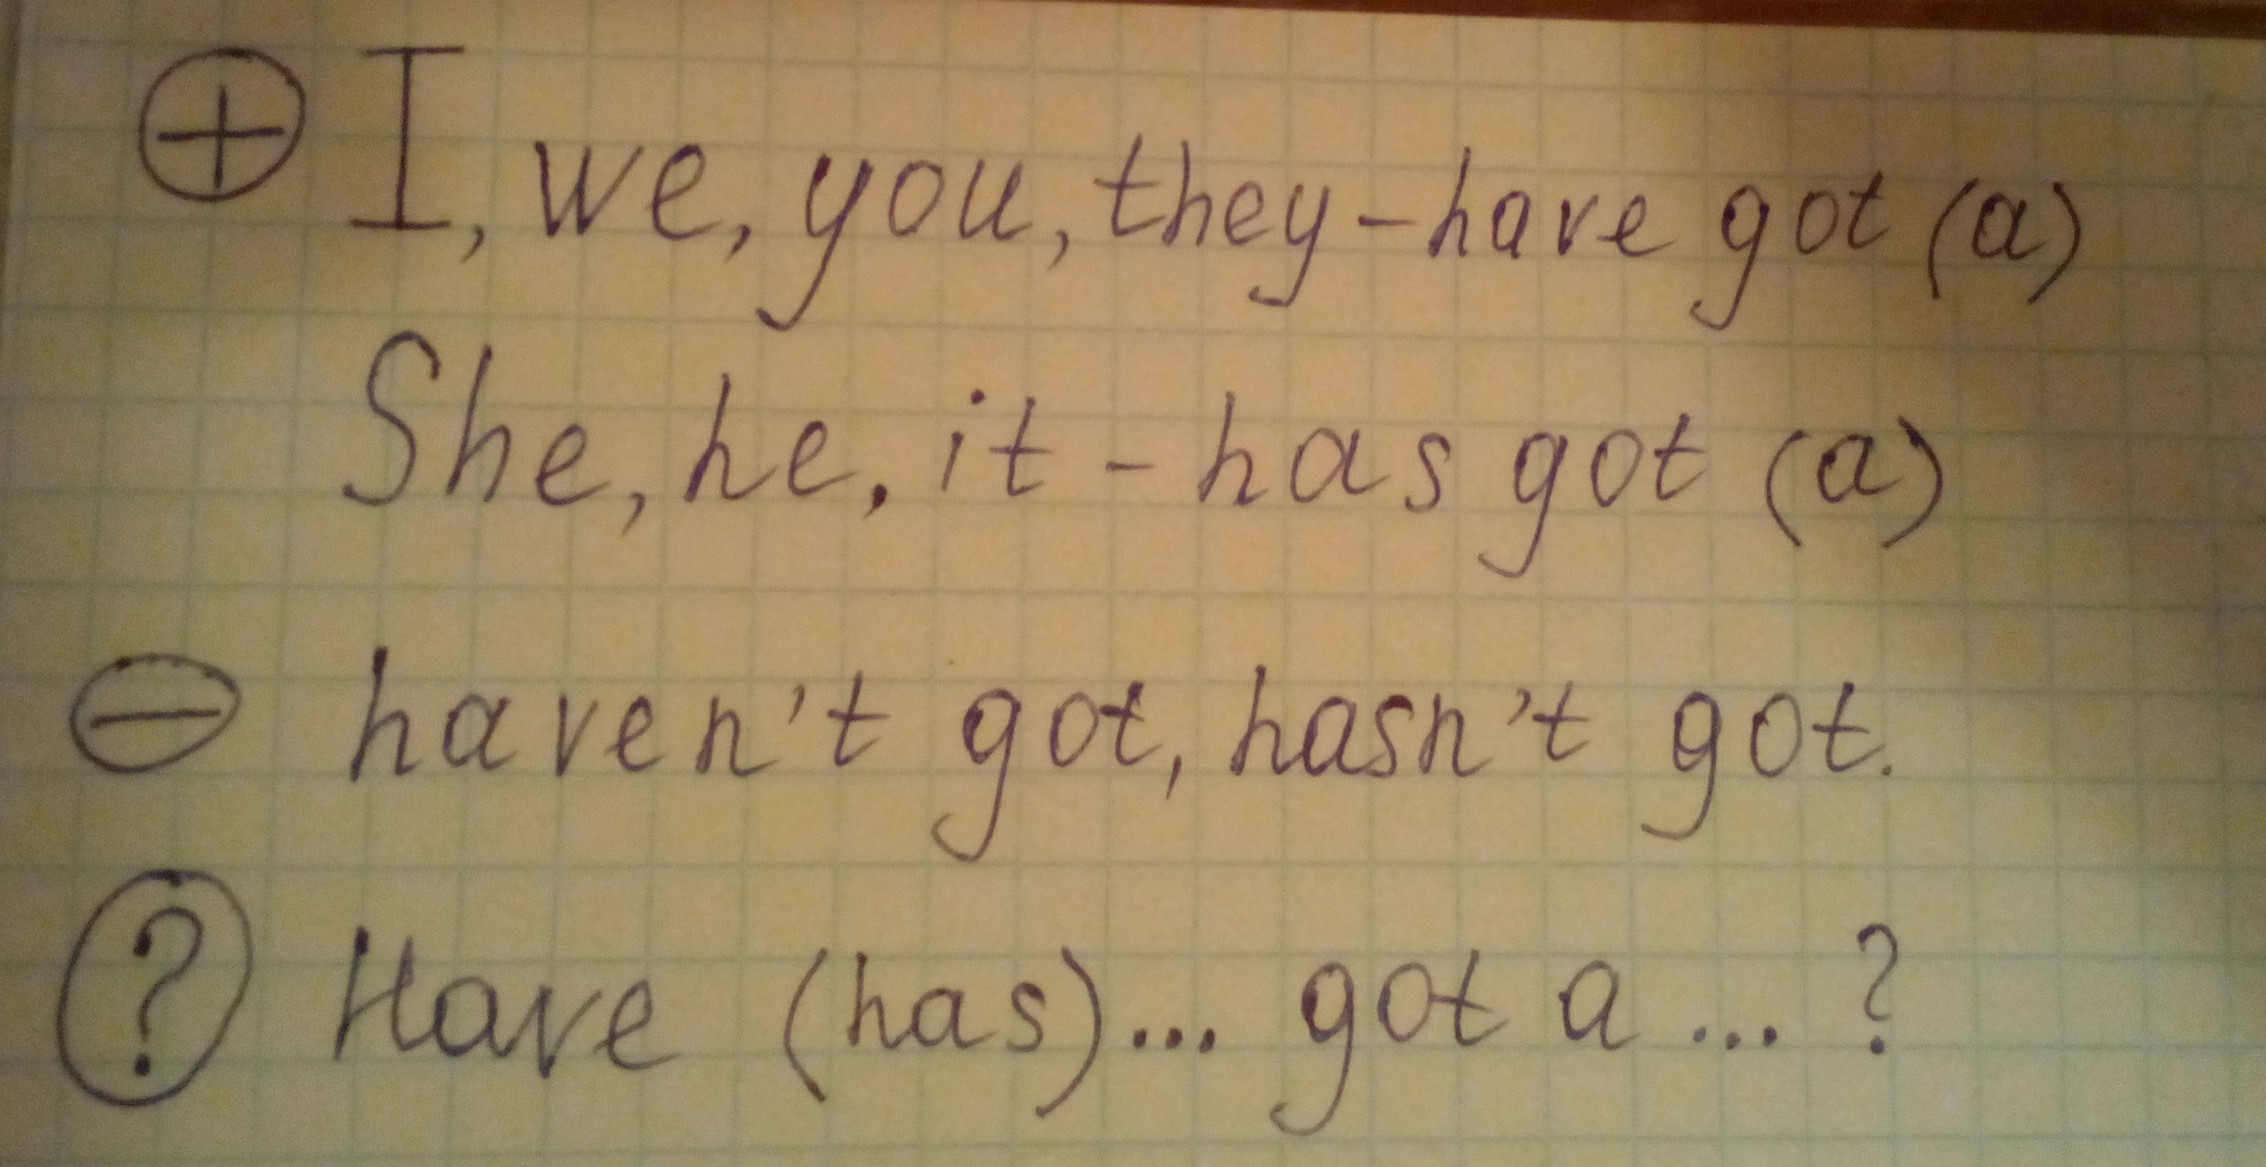 ⊕ I, we, you, they - have got (a)
She, he, it - has got (a)
⊖ haven't got, hasn't got.
? Have (has)... got a ... ?